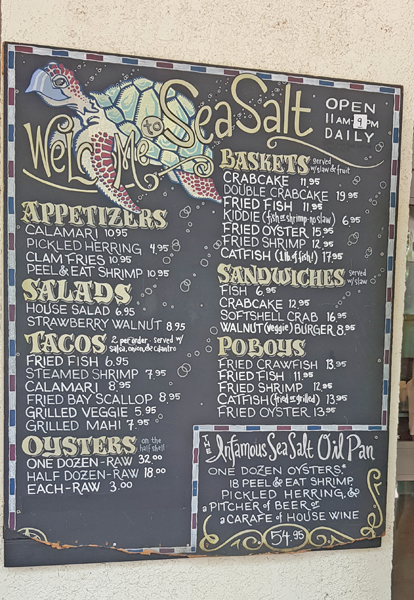 Welcome to Sea Salt
OPEN
11AM-9PM
DAILY
APPETIZERS
CALAMARI 10.95
PICKLED HERRING 4.95
CLAM FRIES 10.95
PEEL & EAT SHRIMP 10.95
SALADS
HOUSE SALAD 6.95
STRAWBERRY WALNUT 8.95
TACOS 2 per order - served w/ salsa, onion, & cilantro
FRIED FISH 6.95
STEAMED SHRIMP 7.95
CALAMARI 8.95
FRIED BAY SCALLOP 8.95
GRILLED VEGGIE 5.95
GRILLED MAHI 7.95
OYSTERS on the half shell
ONE DOZEN-RAW 32.00
HALF DOZEN-RAW 18.00
EACH-RAW 3.00
BASKETS served w/ slaw & fruit
CRABCAKE 11.95
DOUBLE CRABCAKE 19.95
FRIED FISH 11.95
KIDDIE (fish or shrimp-no slaw) 6.95
FRIED OYSTER 15.95
FRIED SHRIMP 12.95
CATFISH (1 lb of fish!) 17.95
SANDWICHES served w/ slaw
FISH 6.95
CRABCAKE 12.95
SOFTSHELL CRAB 16.95
WALNUT (veggie) BURGER 8.95
POBOYS
FRIED CRAWFISH 13.95
FRIED FISH 11.95
FRIED SHRIMP 12.95
CATFISH (fried or grilled) 13.95
FRIED OYSTER 13.95
The Infamous Sea Salt Oil Pan
ONE DOZEN OYSTERS,*
18 PEEL & EAT SHRIMP,
PICKLED HERRING, &
a PITCHER OF BEER or
a CARAFE of HOUSE WINE
54.95